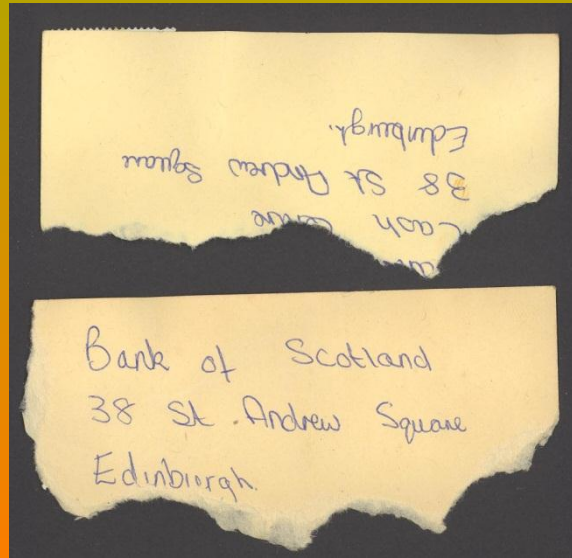 Cash Centre
38 St Andrew Square
Edinburgh.
Bank of Scotland
38 St. Andrew Square
Edinburgh.